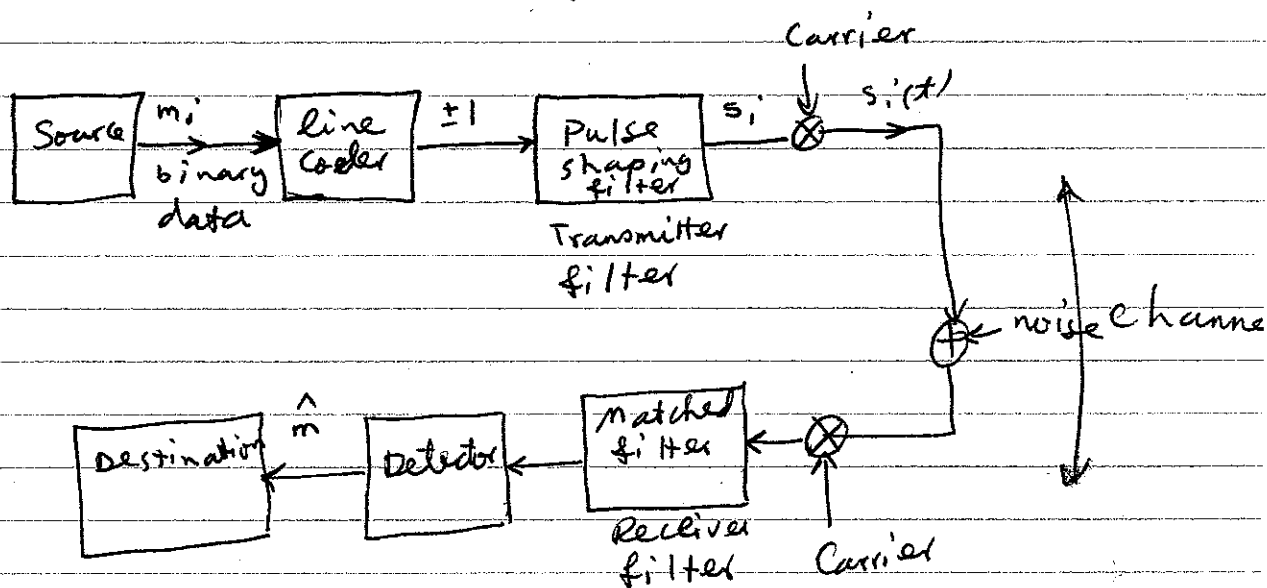 Carrier
Source
m_i
binary
data
line
coder
±1
Pulse
shaping
filter
Transmitter
filter
s_i
⊗
s_i(t)
+
noise
Channe
⊗
Carrier
Matched
filter
Receiver
filter
Detector
m̂
Destination